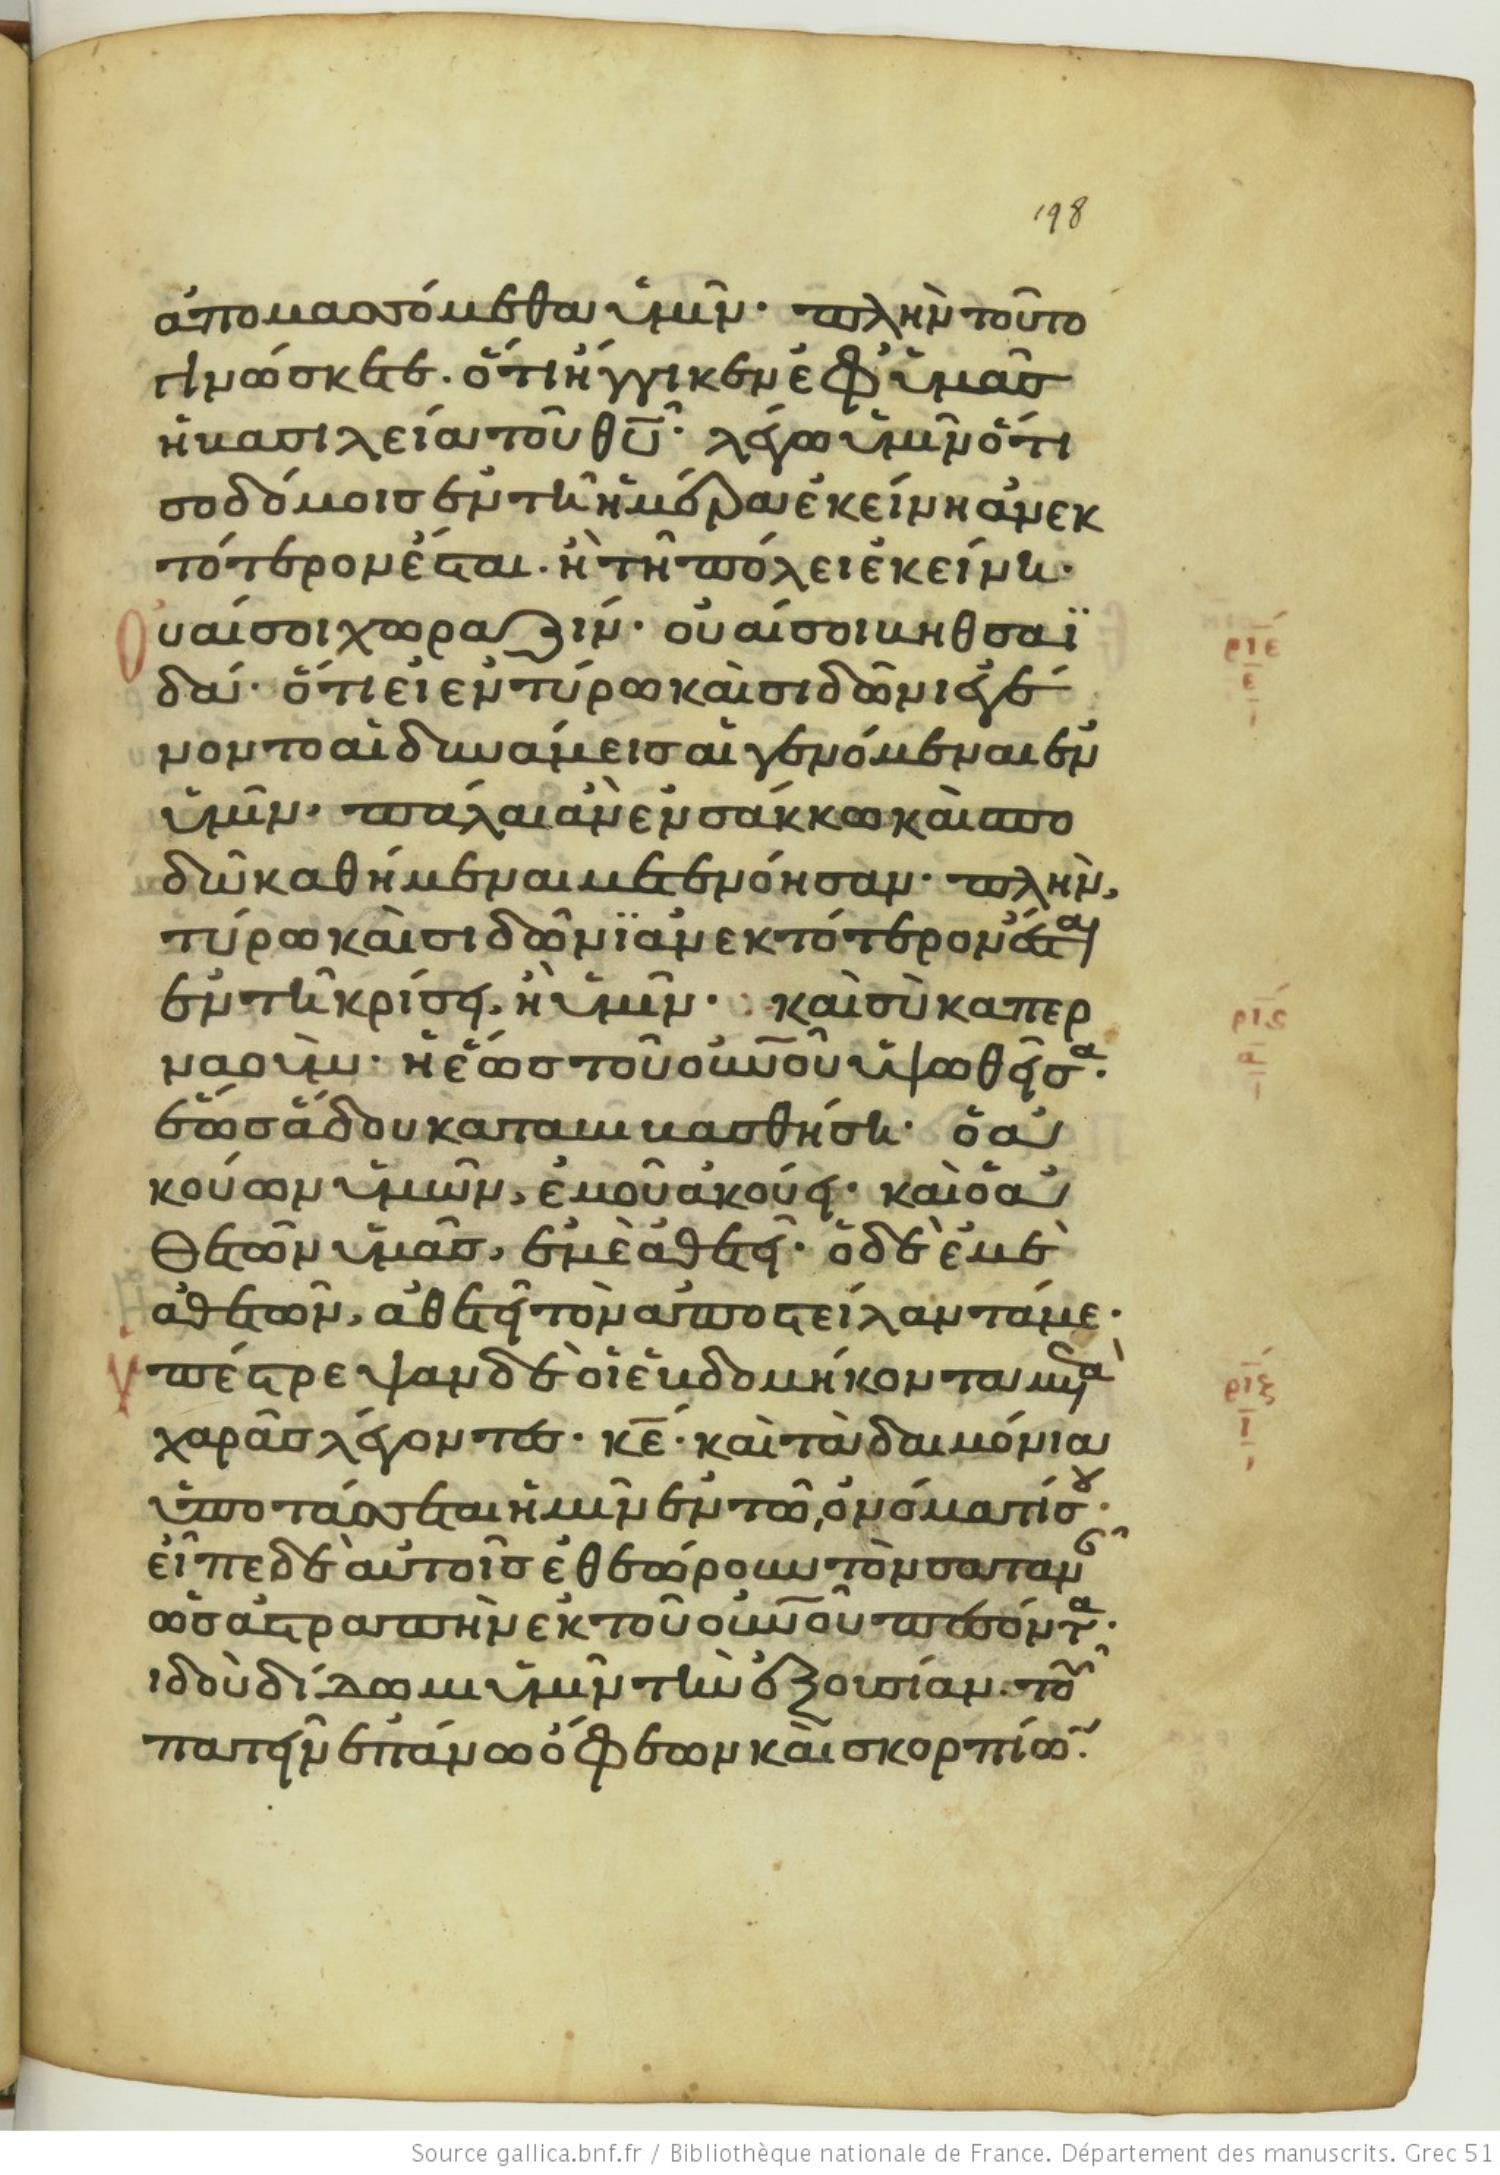 198
ἀπομασσόμεθα ὑμῖν· πλὴν τοῦτο
γινώσκετε· ὅτι ἤγγικεν ἐφ' ὑμᾶσ
ἡ βασιλεία τοῦ θῦ· λέγω ὑμῖν ὅτι
σοδόμοισ ἐν τῆ ἡμέρα ἐκείνη ἀνεκ
τότερον ἔσται· ἢ τῆ πόλει ἐκείνη·
Ουαί σοι χωραζίν· οὐαί σοι βηθσαϊ
δά· ὅτι εἰ ἐν τύρω καὶ σιδῶνι ἐγέ
νοντο αἱ δυνάμεισ αἱ γενόμεναι ἐν
ὑμῖν· πάλαι ἂν ἐν σάκκω καὶ σπο
δῶ καθήμεναι μετενόησαν· πλὴν,
τύρω καὶ σιδῶνϊ ἀνεκτότερον ἔσται
ἐν τῆ κρίσει, ἢ ὑμῖν· καὶ σὺ καπερ
ναούμ· ἡ ἕωσ τοῦ οὐνοῦ ὑψωθεῖσα·
ἕωσ ἅδου καταβιβασθήση· ὁ ἀ
κούων ὑμῶν, ἐμοῦ ἀκούει· καὶ ὁ ἀ
θετῶν ὑμᾶσ, ἐμὲ ἀθετεῖ· ὁ δὲ ἐμὲ
ἀθετῶν, ἀθετεῖ τὸν ἀποστείλαντά με·
Υπέστρεψαν δὲ οἱ ἑβδομήκοντα μετὰ
χαρᾶσ λέγοντεσ· κε· καὶ τὰ δαιμόνια
ὑποτάσσεται ἡμῖν ἐν τῶ ὀνόματί σου·
εἶπε δὲ αὐτοῖσ ἐθεώρουν τὸν σαταν
ὡσ ἀστραπὴν ἐκ τοῦ οὐνοῦ πεσόντα·
ιδοὺ δίδωμι ὑμῖν τὴν ἐξουσίαν τοῦ
πατεῖν ἐπάνω ὄφεων καὶ σκορπίων·
ριε
ε
ρις
ριζ
ι
Source gallica.bnf.fr / Bibliothèque nationale de France. Département des manuscrits. Grec 51